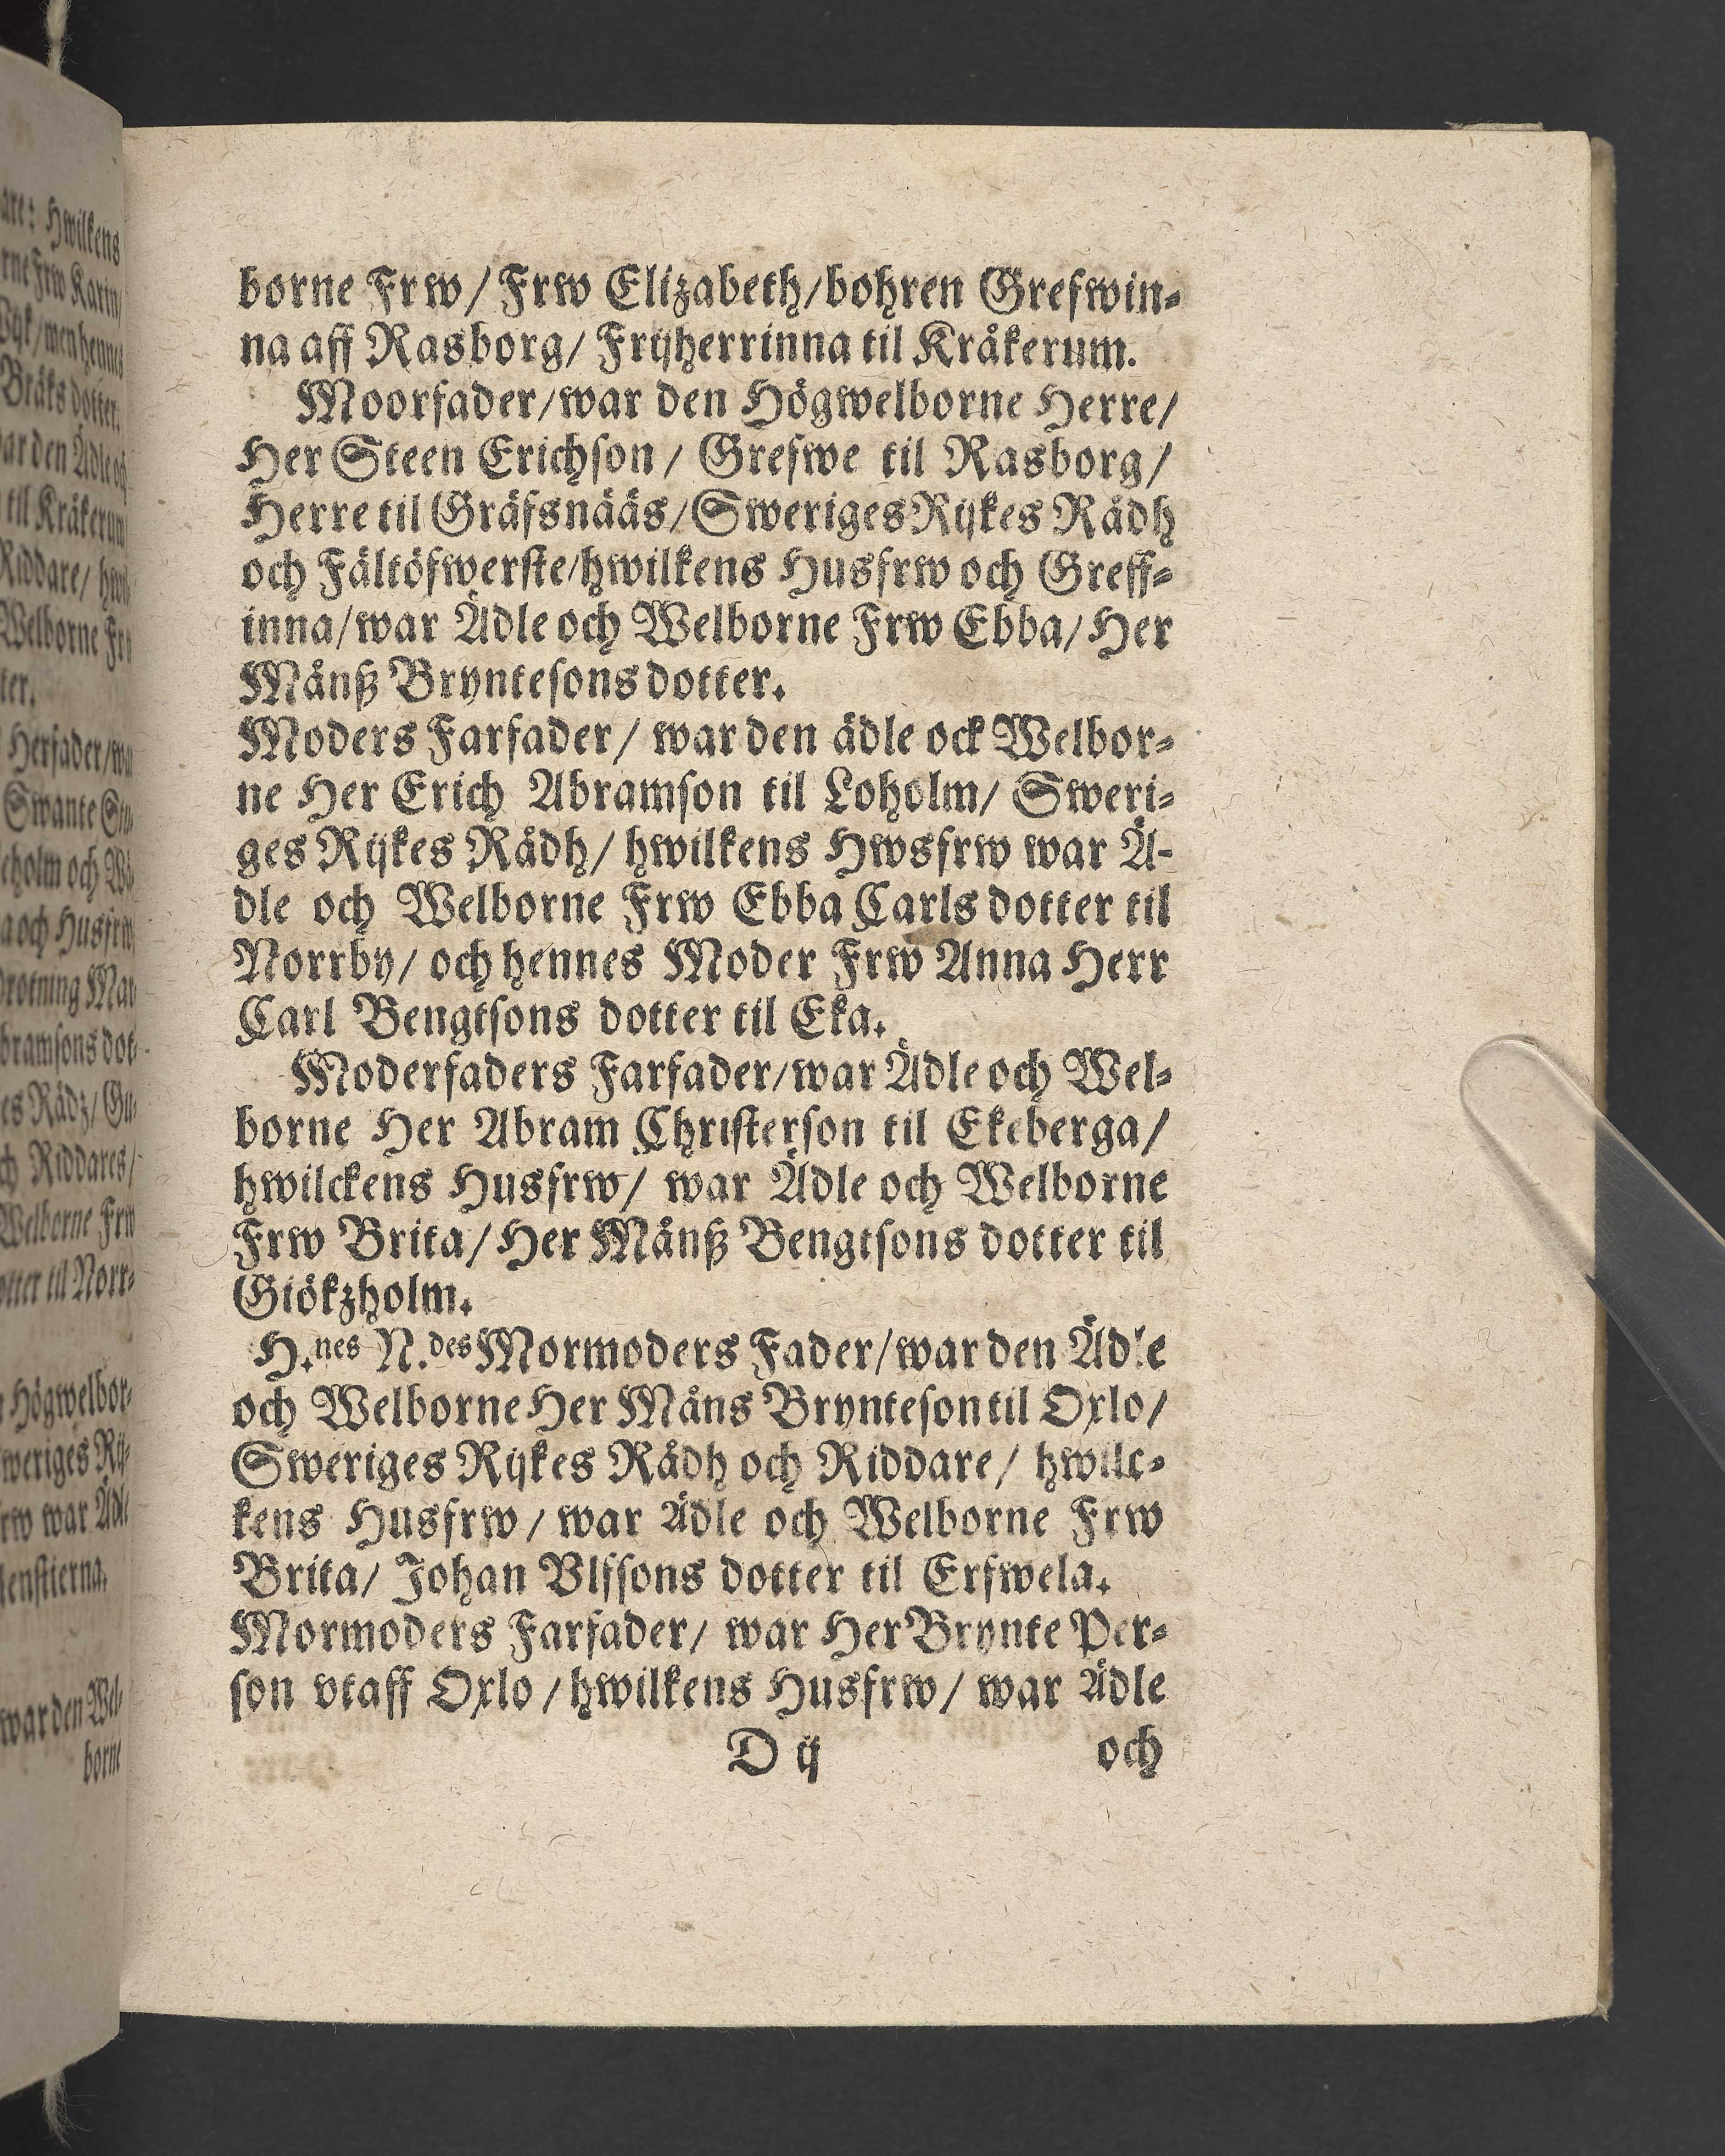 borne Frw/ Frw Elizabeth/bohren Grefwin-
na aff Rasborg/ Frijherrinna til Kråkerum.
Moorfader/war den Högwelborne Herre/
Her Steen Erichson/ Grefwe til Rasborg/
Herre til Gräfsnääs/Sweriges Rijkes Rådh
och Fältöfwerste/hwilkens Husfrw och Greff-
inna/war Ädle och Welborne Frw Ebba/Her
Månß Bryntesons dotter.
Moders Farfader/ war den ädle ock Welbor-
ne Her Erich Abramson til Loholm/ Sweri-
ges Rijkes Rådh/ hwilkens Hwsfrw war Ä-
dle och Welborne Frw Ebba Carls dotter til
Norrby/ och hennes Moder Frw Anna Herr
Carl Bengtsons dotter til Eka.
Moderfaders Farfader/war Ädle och Wel-
borne Her Abram Christerson til Ekeberga/
hwilckens Husfrw/ war Ädle och Welborne
Frw Brita/Her Månß Bengtsons dotter til
Giökzholm.
H.nes N.des Mormoders Fader/war den Ädle
och Welborne Her Måns Brynteson til Oxlo/
Sweriges Rijkes Rådh och Riddare/ hwilc-
kens Husfrw/ war Ädle och Welborne Frw
Brita/ Johan Vlfsons dotter til Erfwela.
Mormoders Farfader/ war Her Brynte Per-
son vtaff Oxlo/hwilkens Husfrw/ war Ädle
D ij och